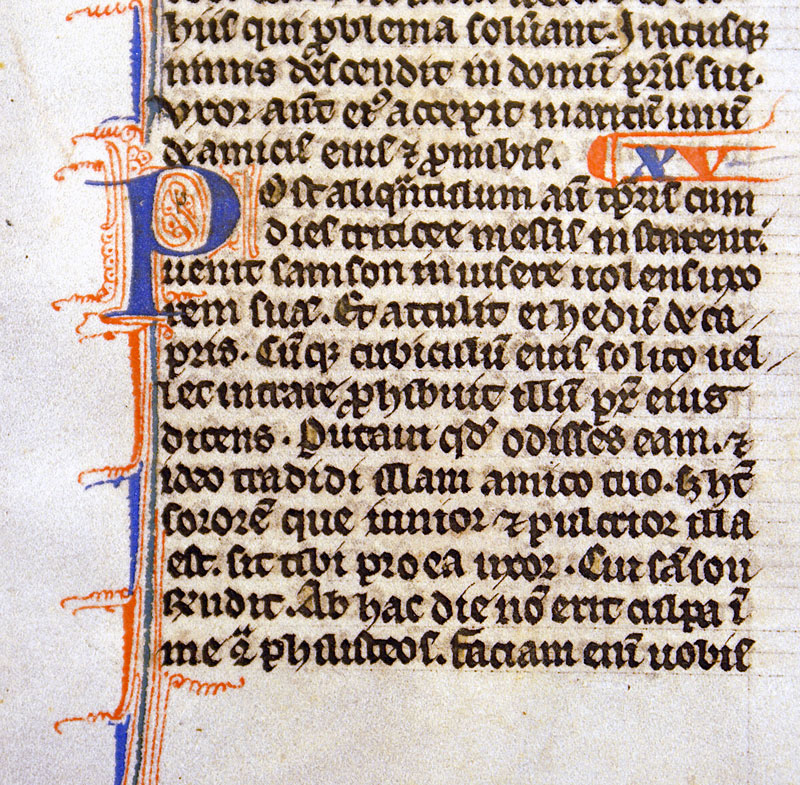 hus qui ꝓblema soluant. Iratusqꝫ
nimis descendit in domū pr̄is sui.
Uxor aūt eiꝰ accepit maritū unū
de amicis eius ⁊ ꝓnubis.
XV
Post aliqn̄tulum aū tꝑris cum
dies triticee messis instarent.
uenit samson inuisere uolens uxo
rem suā. Et attulit ei hedū de ca
pris. Cūqꝫ cubiculū eius solito uel
let intrare ꝓhibuit illū pr̄ eius
dicens. Putaui qd̄ odisses eam. ⁊
ideo tradidi illam amico tuo. Sꝫ hꝫ
sororē que iunior ⁊ pulcrior illa
est. sit tibi pro ea uxor. Cui sāson
rn̄dit. Ab hac die nō erit culpa ī
me ꝯ̄ philisteos. Faciam enī uobis